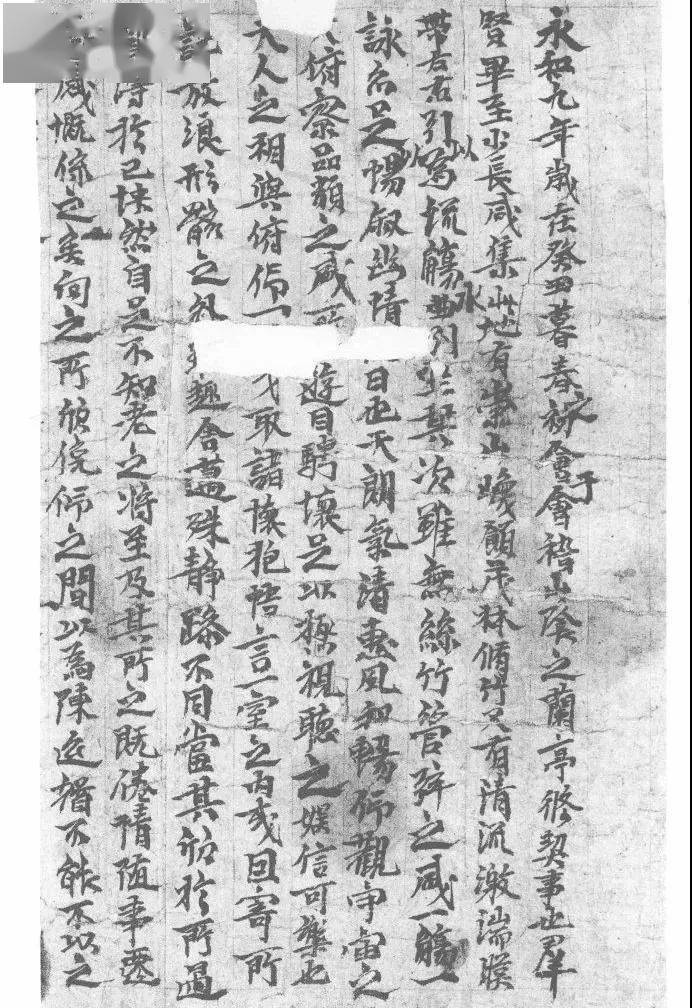 永和九年歲在癸丑暮春之初會于會稽山陰之蘭亭修契事也群
賢畢至小長咸集此地有崇山峻領茂林脩竹又有清流激湍暎
帶左右引以為流觴曲水列坐其次雖無絲竹管弦之盛一觴一
詠亦足以暢敘幽情日也天朗氣清惠風和暢仰觀宇宙之
俯察品類之盛所遊目騁懷足以極視聽之娛信可樂也
夫人之相與俯仰一或取諸懷抱悟言一室之內或因寄所
託放浪形骸之外趣舍萬殊静躁不同當其欣於所遇
得於己怏然自足不知老之將至及其所之既倦情隨事遷
感慨係之矣向之所欣俛仰之間以為陳迹猶不能不以之